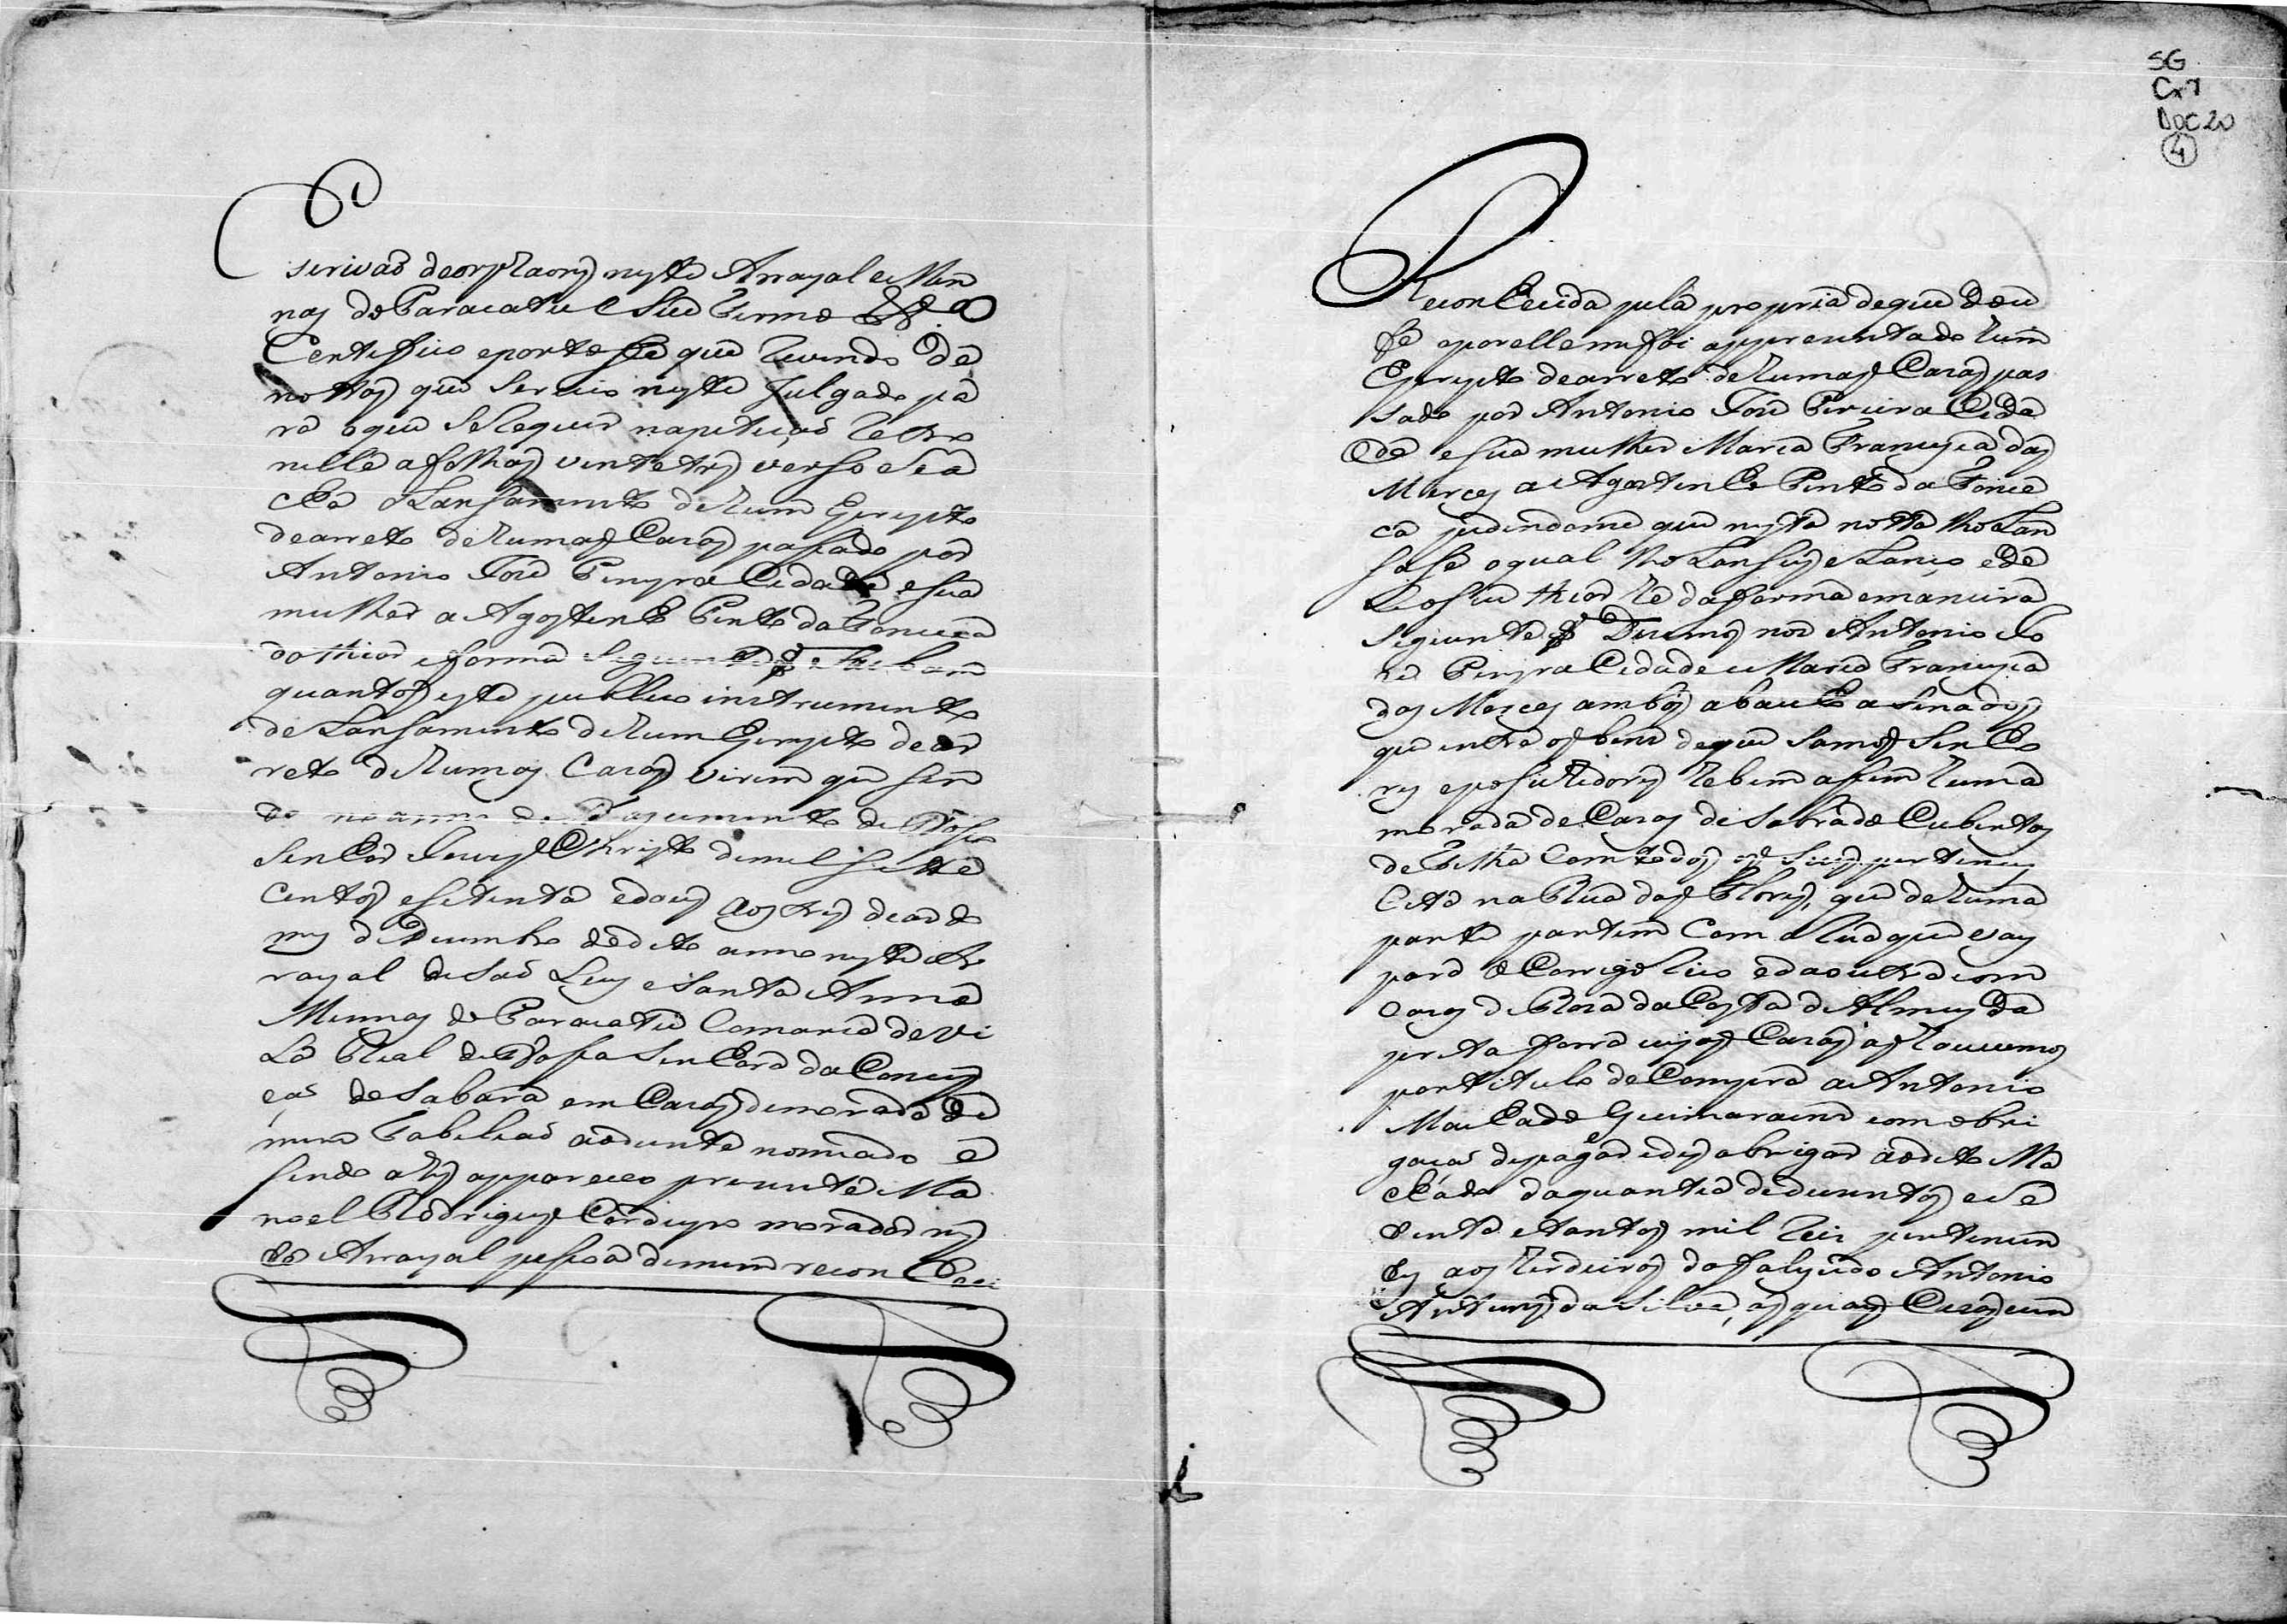 Escrivaõ de orphaons neste Arrayal e Min
nas do Paracatu e Seu Termo &ª
Certeffico e porto fé que Levendo o de
nottas que Serveo neste Julgado pa
ra o que Se Requer na peticaõ Retro
nelle a folhas vinte tres verso Se a
cha o Lansamento de hum Escripto
de arreto de humas Cazas passado por
Antonio Joze Pereyra Cidade e sua
mulher a Agostinho Pinto da Fonceca
do thior e forma Seguinte Saibam
quantos este publico instromento
de Lansamento de hum Escripto de ar
reto de humas Cazas virem que sen
do no anno do Nascimento de Nosso
Senhor Jezus Christo de mil sette
centos e setenta e dous aos tres de
mes de Dezembro do dito anno neste Ar
rayal de Saõ Luis e Santa Anna
Minnas do Paracatu Comarca da Vi
la Real de Nossa Senhora da Concey
caõ do Sabara em Cazas de morada de
mim Tabeliaõ ao diante nomiado e
sendo ahy appareceo prezente Ma
noel Rodrigues Cordeyro morador nes
te Arrayal pessoa de mim reconheci
SG
Cx 7
DOC 20
4
Reconhecida pela propria de que dou
fé e por elle me foi apprezentado hum
Escripto de arreto de humas Cazas pas
sado por Antonio Joze Pereira Cida
de e sua mulher Maria Francisca das
Merces a Agostinho Pinto da Fonce
ca pedindome que nesta notta lho Lan
sase o qual lho Lansey e Lanço e de
Seu thior he da forma e maneira
Seguinte Dizemos nos Antonio Jo
ze Pereyra Cidade e Maria Francisca
das Merces ambos abaicho a Sinados
que entre os bens de que Somos Senho
res e possuhidores he bem assim huma
morada de Cazas de Sobrado Cubertas
de Telha Com todos os Seus pertences
Cita na Rua das Flores, que de huma
parte partem Com a Rua que vay
para o Corrego Rico e da outra com
Cazas de Roza da Costa de Almeyda
preta forra cujas Cazas as houvemos
por titulo de Compra a Antonio
Machado Guimaraens com obri
gacaõ de pagar e des obrigar ao dito Ma
chado da quantia de duzentos e Se
tenta e tantos mil Reis pertencen
tes aos herdeiros do falecido Antonio
Antunes da Silva, as quais Cazas com